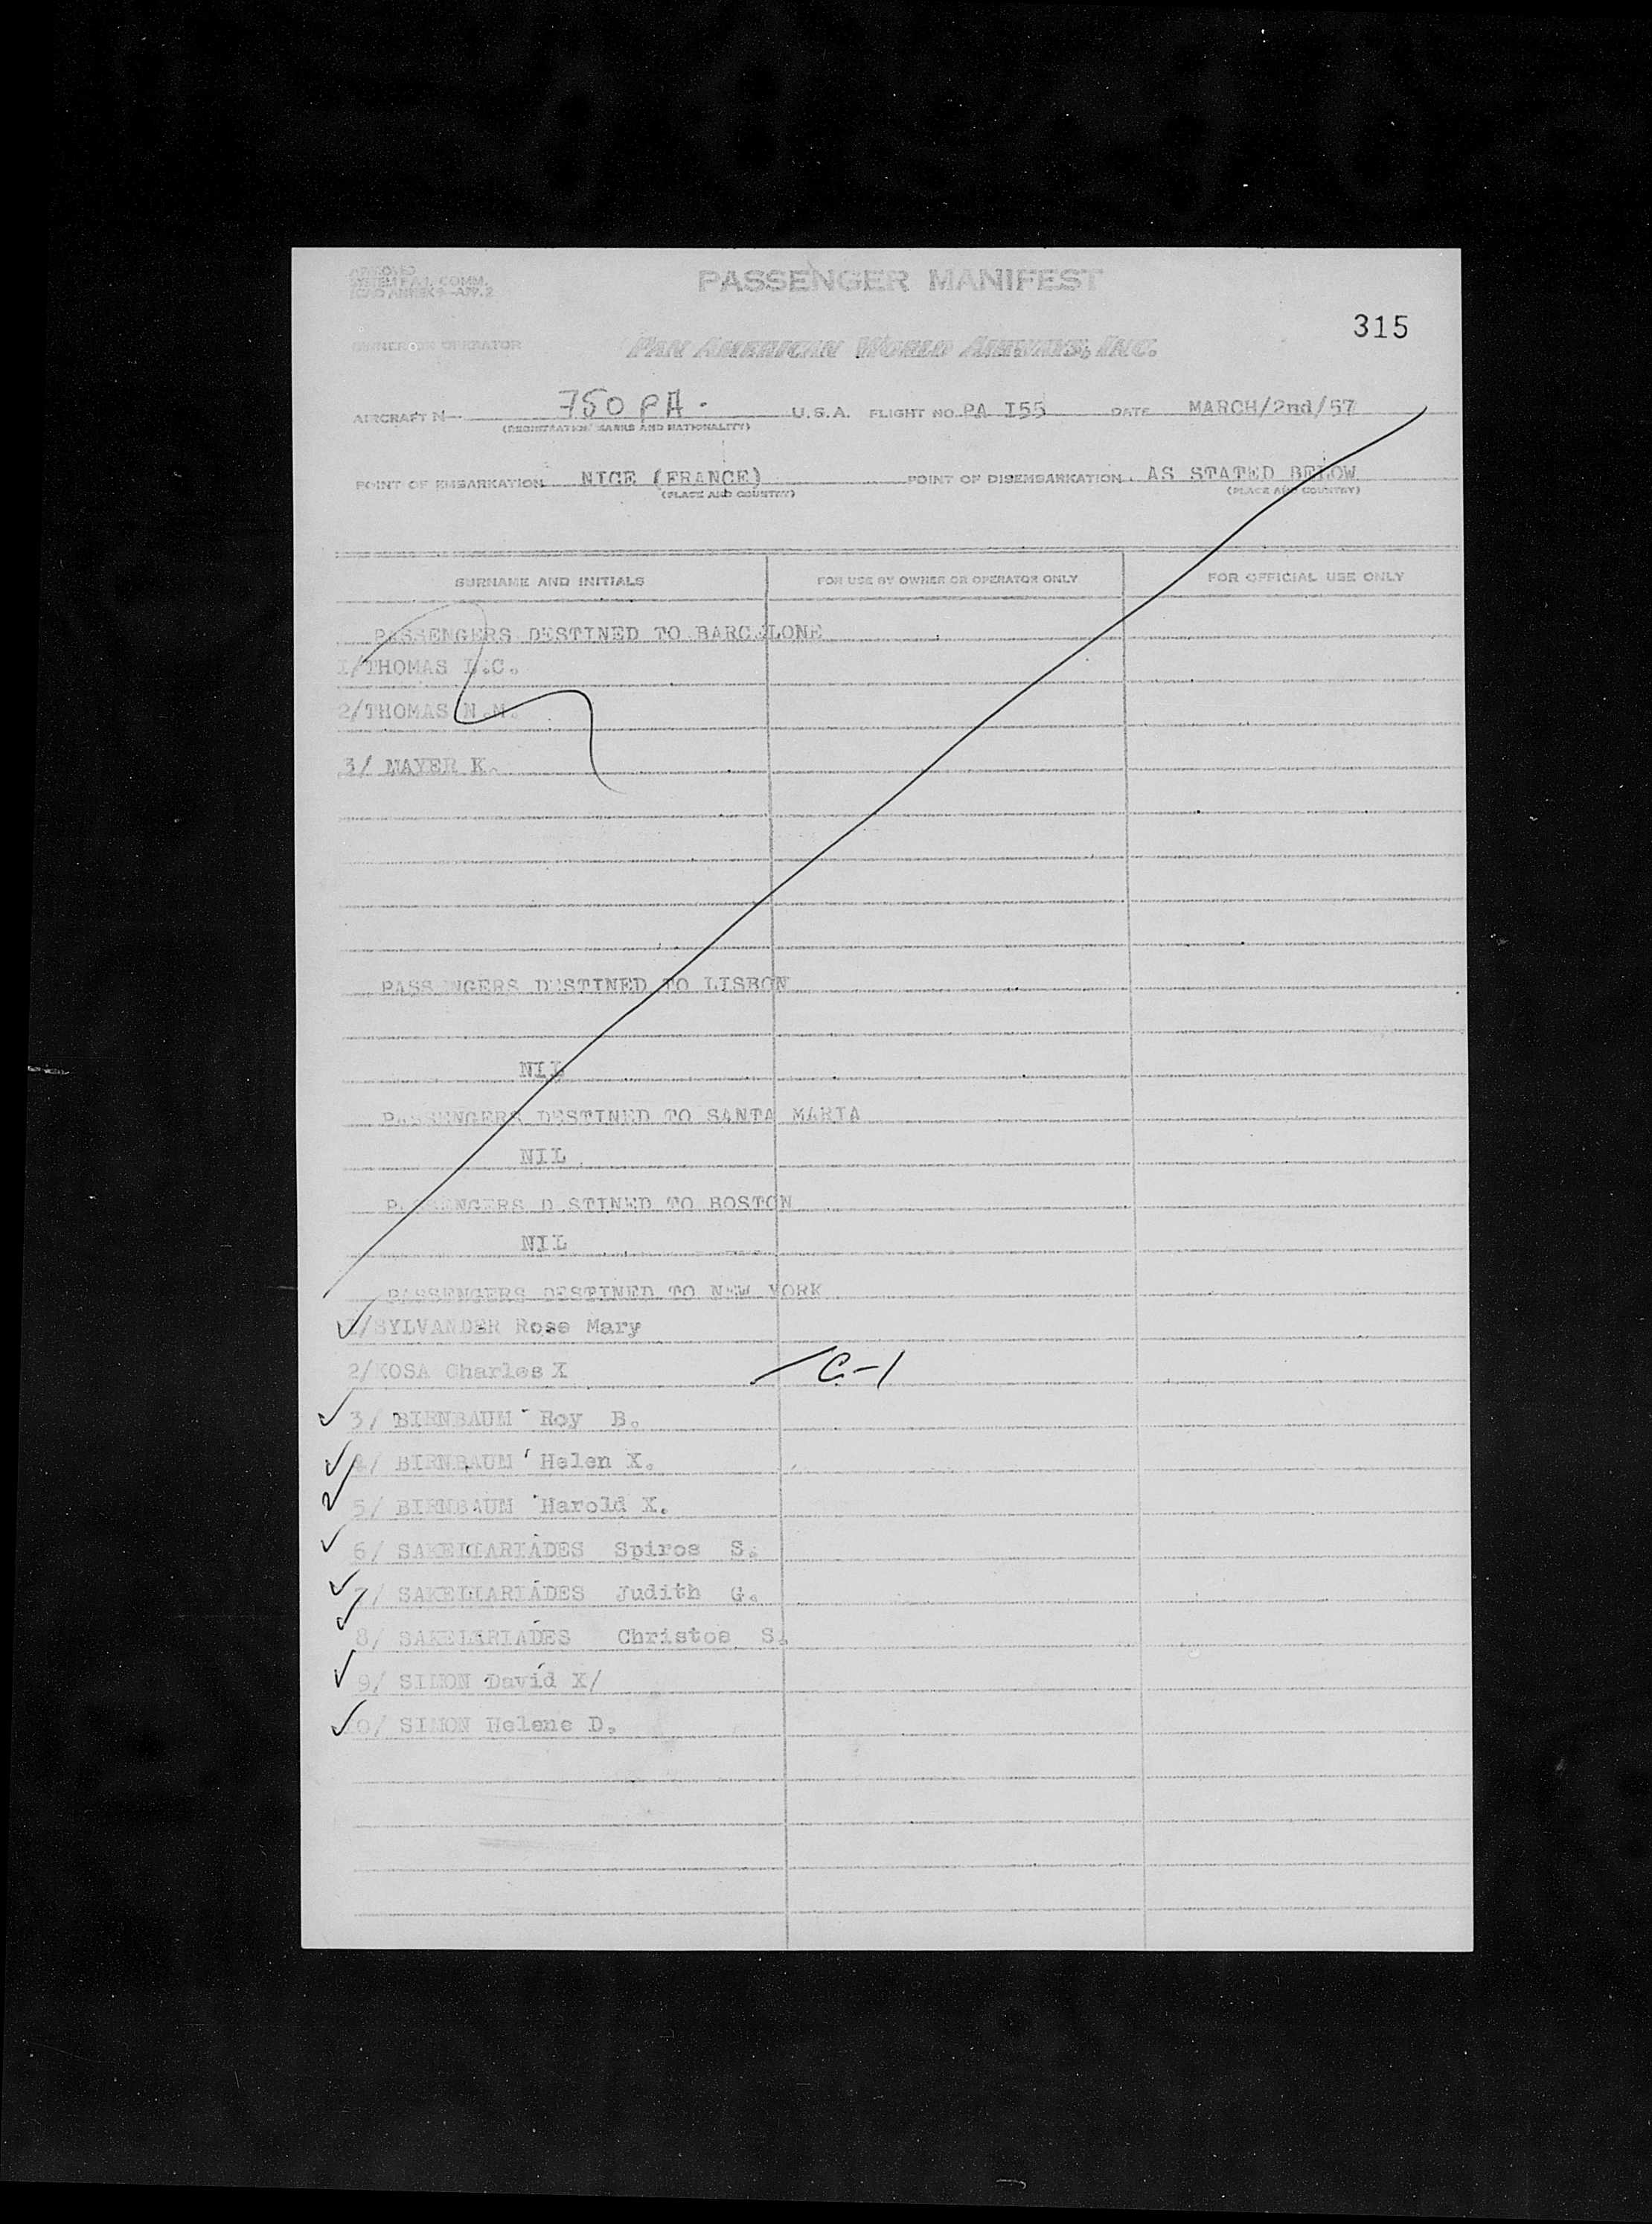 APPROVED
SYSTEM FAL COMM.
ICAO ANNEX 9-APP. 2
PASSENGER MANIFEST
315
OWNER OR OPERATOR
PAN AMERICAN WORLD AIRWAYS, INC.
AIRCRAFT N 750 PA. U.S.A. FLIGHT NO. PA I55 DATE MARCH/2nd/57
(REGISTRATION MARKS AND NATIONALITY)
POINT OF EMBARKATION NICE (FRANCE) POINT OF DISEMBARKATION AS STATED BELOW
(PLACE AND COUNTRY) (PLACE AND COUNTRY)
SURNAME AND INITIALS FOR USE BY OWNER OR OPERATOR ONLY FOR OFFICIAL USE ONLY
PASSENGERS DESTINED TO BARCELONE
1/THOMAS L.C.
2/THOMAS N.M.
3/ MAYER K.
PASSENGERS DESTINED TO LISBON
NIL
PASSENGERS DESTINED TO SANTA MARIA
NIL
PASSENGERS DESTINED TO BOSTON
NIL
PASSENGERS DESTINED TO NEW YORK
1/SYLVANDER Rose Mary
2/KOSA Charles X C-1
3/ BIRNBAUM Roy B.
4/ BIRNBAUM Helen X.
5/ BIRNBAUM Harold X.
6/ SAKELLARIADES Spiros S.
7/ SAKELLARIADES Judith G.
8/ SAKELARIADES Christos S.
9/ SIMON David X/
10/ SIMON Helene D.